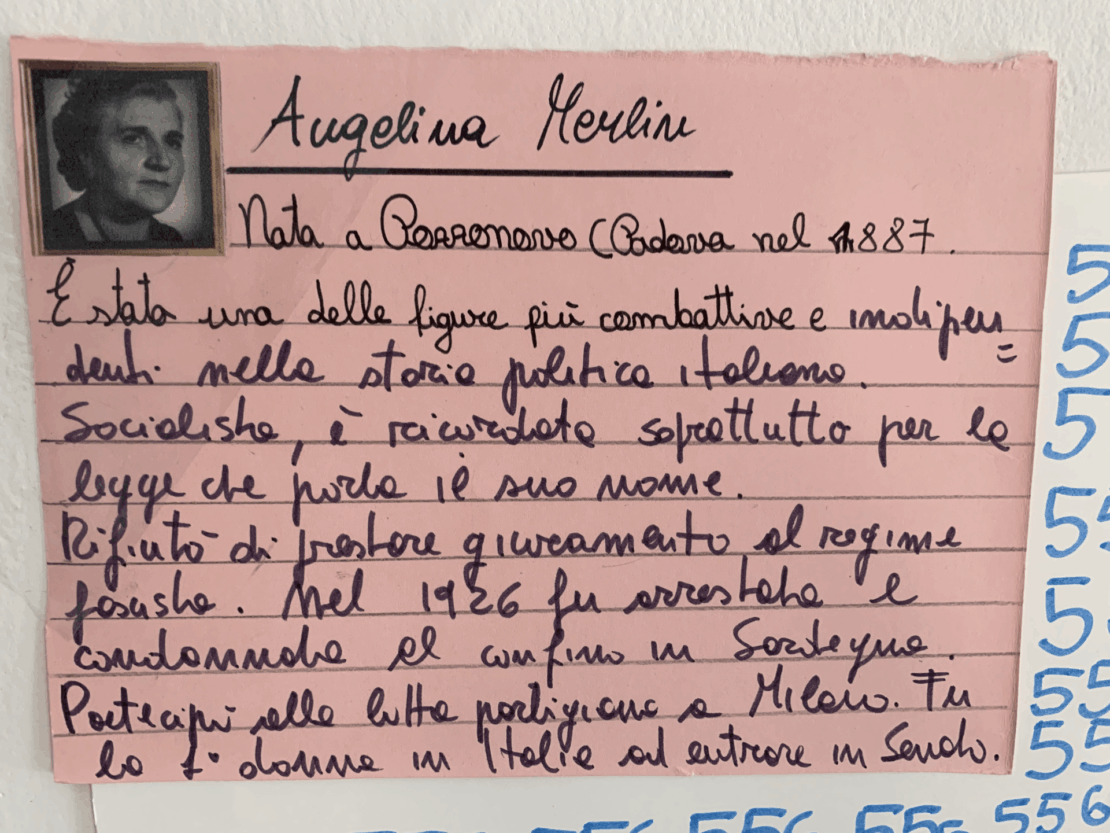 Angelina Merlin
Nata a Pozzonovo (Padova nel 1887.
È stata una delle figure più combattive e indipen=
denti nella storia politica italiana.
Socialista, è ricordata soprattutto per la
legge che porta il suo nome.
Rifiutò di prestare giuramento al regime
fascista. Nel 1926 fu arrestata e
condannata al confino in Sardegna.
Partecipò alla lotta partigiana a Milano. Fu
la 1° donna in Italia ad entrare in Senato.
5
5
5
55
5
55
55
556 556 556 556